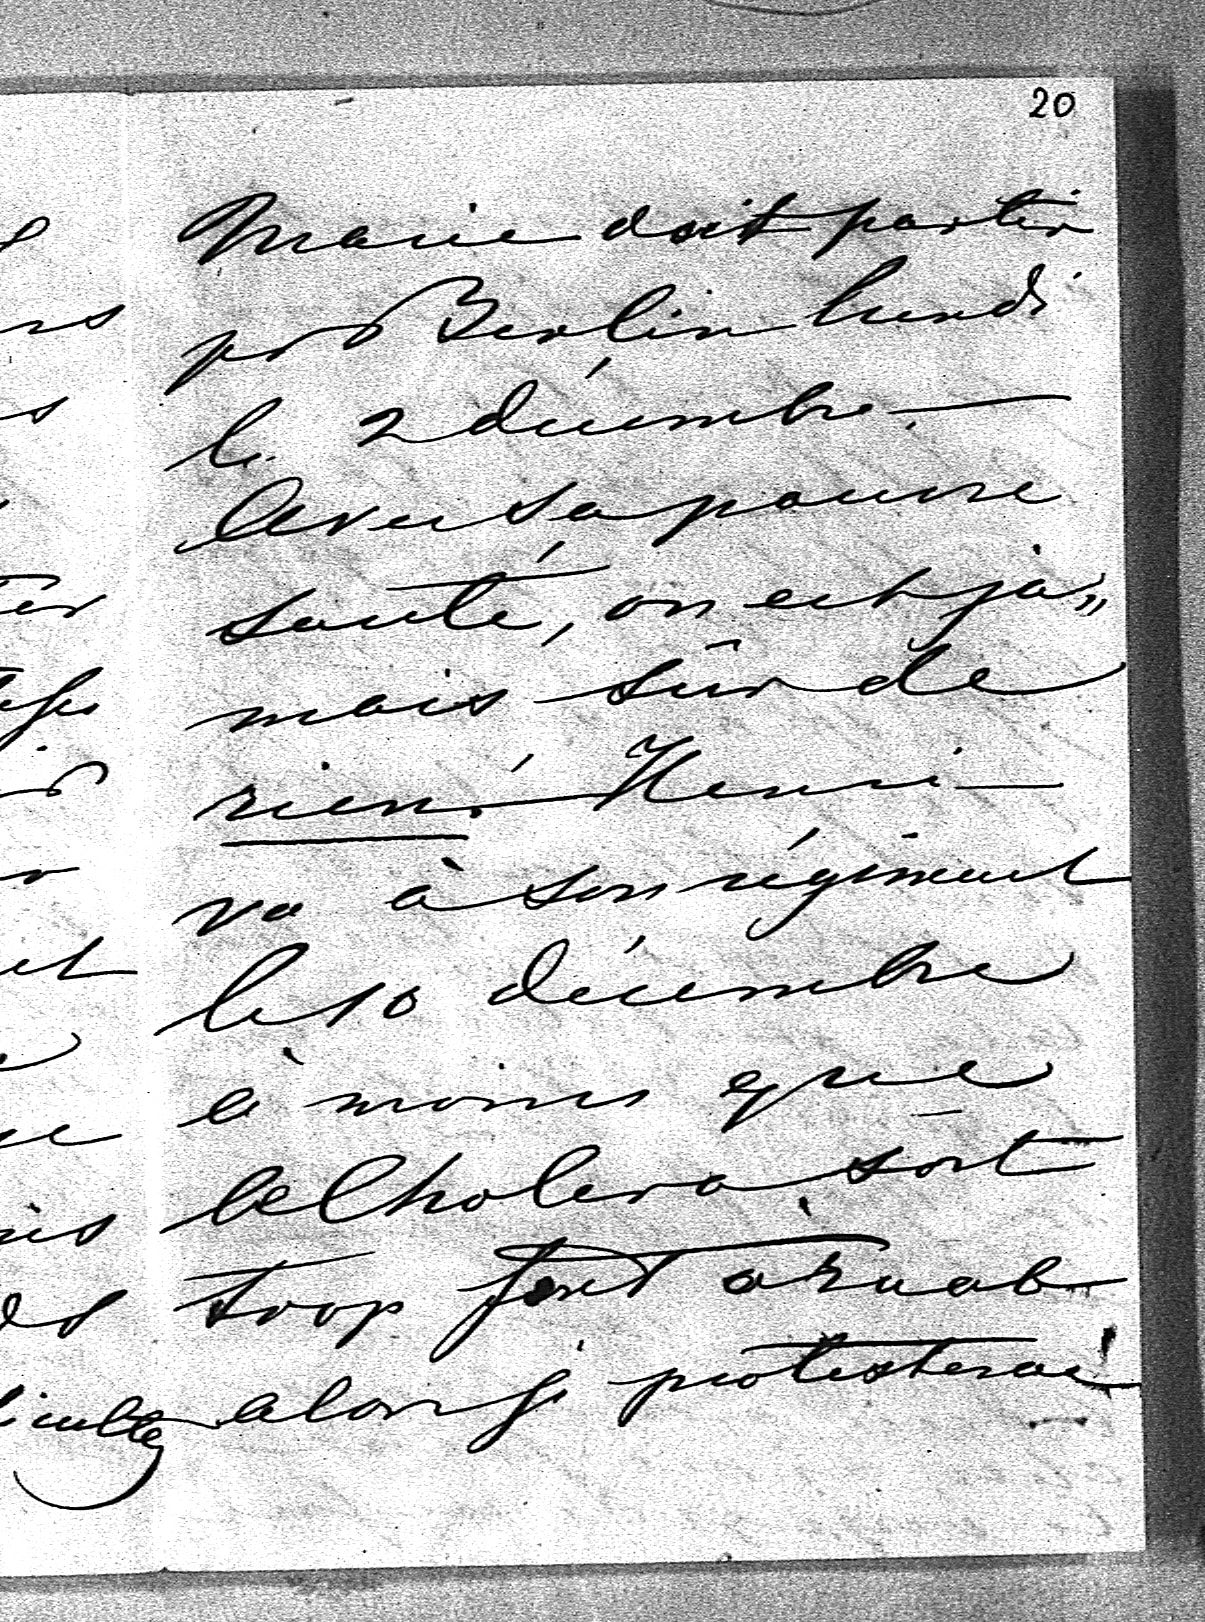 20
Marie doit partir
pr Berlin lundi
le 2 décembre. —
Avec sa pauvre
santé, on est ja„
mais sûr de
rien! — Henri —
va à son régiment
le 10 décembre
à moins que
le Cholera soit
trop fort à Raab
alors je protesterai!